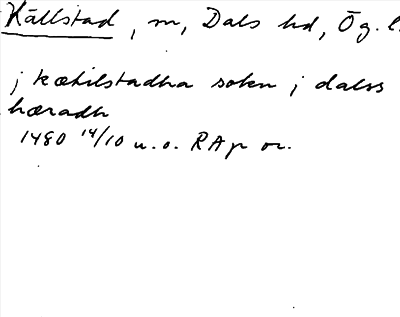 Källstad, sn, Dals hd, Ög. l.
j kætilstadha sokn j dalss
hæradh
1480 14/10 u.o. RAp or.